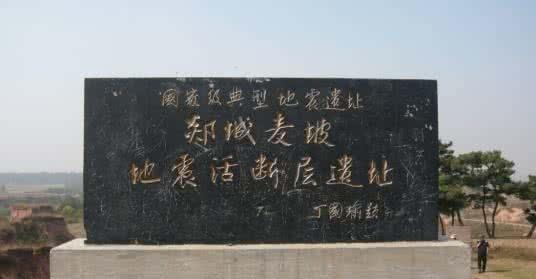 国家级典型地震遗址
郯城麦坡
地震活断层遗址
丁國瑜題